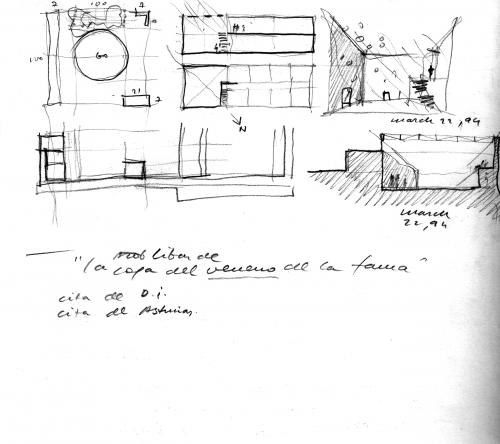 2 100 2
100
60
10
21
2
N
march 22, 94
march
22, 94
libar de
"la copa del veneno de la fama"
cita de D.i.
cita de Asturias.